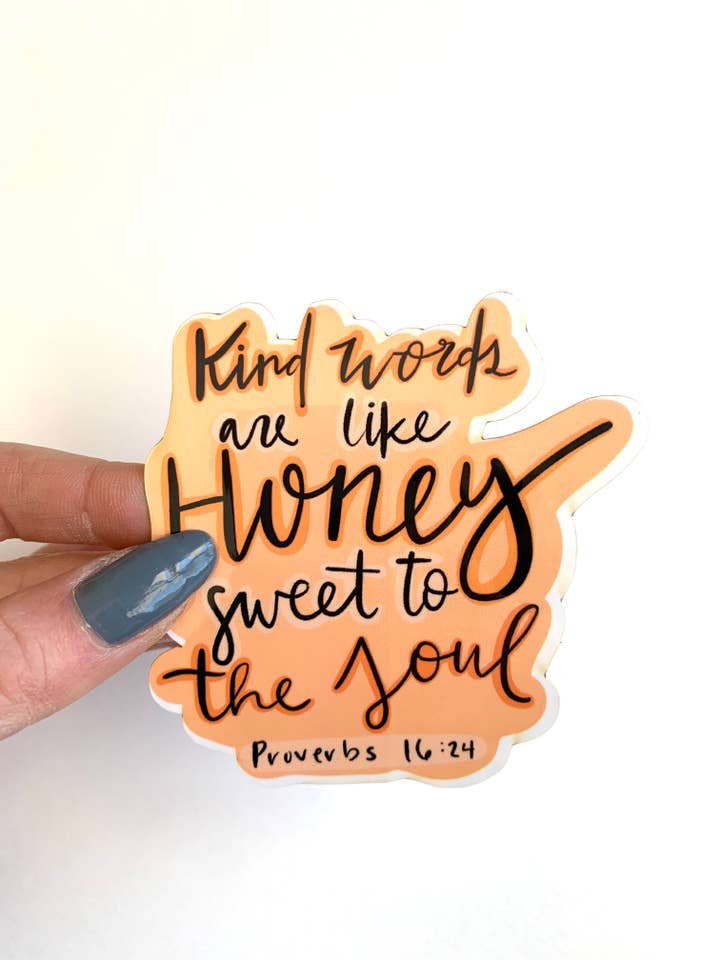 Kind words
are like
Honey
sweet to
the soul
Proverbs 16:24